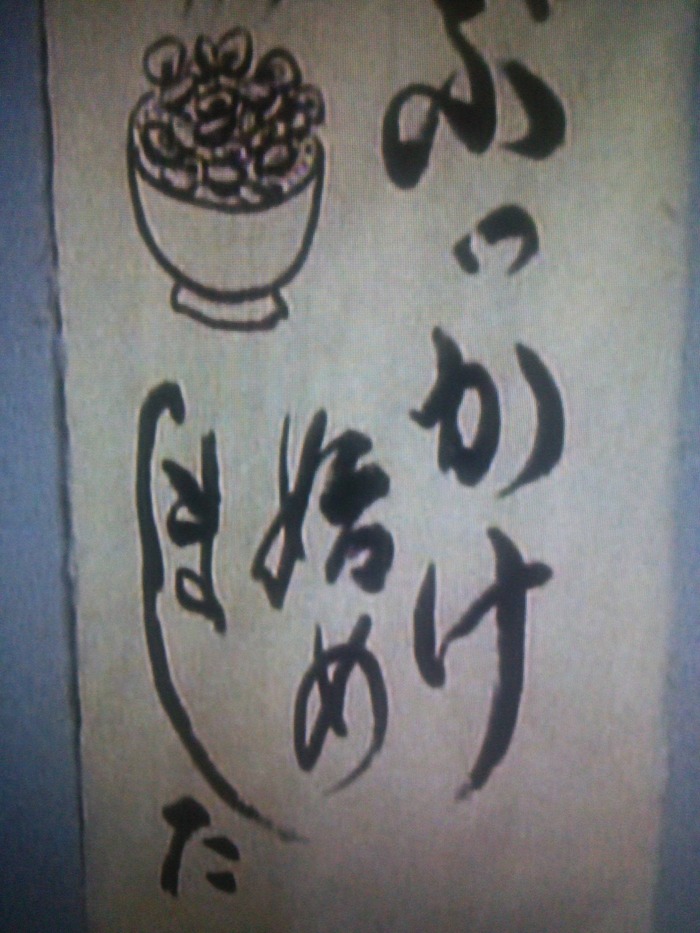 ぶっかけ
始め
ました